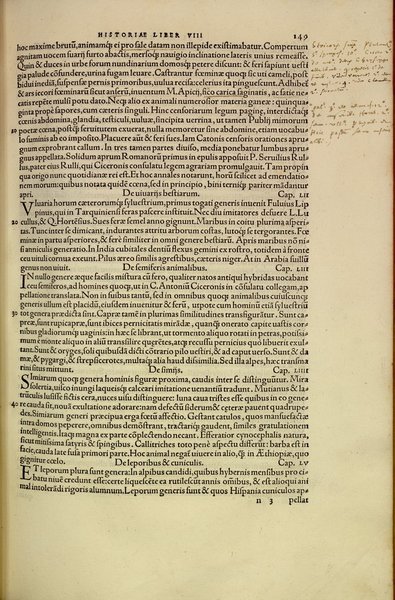 HISTORIAE LIBER VIII 149
hoc maxime brutũ, animamq́; ei pro sale datam non illepide existimabatur. Compertum
agnitam uocem suarij furto abactis, mersoq́; nauigio inclinatione lateris unius remeasse.
Quin & duces in urbe forum nundinarium domosq́; petere discunt: & feri sapiunt uesti
gia palude cõfundere, urina fugam leuare. Castrantur fœminæ quoq; sic uti cameli, post
bidui inediã, suspensæ pernis prioribus, uulua recisa: celerius ita pinguescunt. Adhibet̃
& ars iecori fœminarũ sicut anserũ, inuentum M. Apicij, fico carica saginatis, ac satie ne
catis repẽte mulsi potu dato. Neq; alio ex animali numerosior materia ganeæ: quinqua
ginta propè sapores, cum cæteris singuli. Hinc censoriarum legum paginæ, interdictaq́;
cenis abdomina, glandia, testiculi, uuluæ, sincipita uerrina, ut tamen Publij mimorum
10 poetæ cœna, postq̃ seruitutem exuerat, nulla memoretur sine abdomine, etiam uocabu
lo suminis ab eo imposito. Placuere aũt & feri sues. Iam Catonis censoris orationes apru
gnum exprobrant callum. In tres tamen partes diuiso, media ponebatur lumbus apru
gnus appellata. Solidum aprum Romanorũ primus in epulis apposuit P. Seruilius Rul
lus, pater eius Rulli, qui Ciceronis consulatu legem agrariam promulgauit. Tam propin
qua origo nunc quotidianæ rei est. Et hoc annales notarunt, horũ scilicet ad emendatio
nem morum: quibus notata quidẽ cœna, sed in principio, bini terniq́; pariter mãdantur
apri. De uiuarijs bestiarum. Cap. LII
Viuaria horum cæterorumq́; syluestrium, primus togati generis inuenit Fuluius Lip
pinus, qui in Tarquiniensi feras pascere instituit. Nec diu imitatores defuere L. Lu
20 cullus, & Q. Hortẽsius. Sues feræ semel anno gignunt. Maribus in coitu plurima asperi-
tas. Tunc inter se dimicant, indurantes attritu arborum costas, lutoq́; se tergorantes. Fœ
minæ in partu asperiores, & ferè similiter in omni genere bestiarũ. Apris maribus nõ ni
si anniculis generatio. In India cubitales dentiũ flexus gemini ex rostro, totidem à fronte
ceu uituli cornua exeunt. Pilus æreo similis agrestibus, cæteris niger. At in Arabia suillũ
genus non uiuit. De semiferis animalibus. Cap. LIII
In nullo genere æque facilis mistura cũ fero, qualiter natos antiqui hybridas uocabant
ceu semiferos, ad homines quoq́;, ut in C. Antoniũ Ciceronis in cõsulatu collegam, ap
pellatione translata. Non in suibus tantũ, sed in omnibus quoq; animalibus cuiuscunq́;
generis ullum est placidũ, eiusdem inuenitur & ferũ, utpote cum hominũ etiã syluestriũ
30 tot genera prædicta sint. Capræ tamẽ in plurimas similitudines transfigurãtur. Sunt ca
preæ, sunt rupicapræ, sunt ibices pernicitatis mirãdæ, quanq̃ onerato capite uastis cor-
nibus gladiorumq́; uaginis: in hæc se librant, ut tormento aliquo rotati in petras, potissi
mum è monte aliquo in aliũ transilire quęrẽtes, atq; recussu pernicius quo libuerit exul
tant. Sunt & oryges, soli quibusdã dicti cõtrario pilo uestiri, & ad caput uerso. Sunt & da
mæ, & pygargi, & strepsicerotes, multaq́; alia haud dissimilia. Sed illa alpes, hæc transma
rini situs mittunt. De simijs. Cap. LIIII
Simiarum quoq; genera hominis figuræ proxima, caudis inter se distinguũtur. Mira
solertia, uisco inungi, laqueisq́; calceari imitatione uenantiũ tradunt. Mutianus & la-
trũculis lusisse fictis cera, nuces uisu distinguere: luna caua tristes esse quibus in eo gene
40 re cauda sit, nouã exultatione adorare: nam defectũ siderum & cęteræ pauent quadrupe-
des. Simiarum generi præcipua erga fœtũ affectio. Gestant catulos, quos mansuefactæ
intra domos peperere, omnibus demõstrant, tractariq́; gaudent, similes gratulationem
intelligentis. Itaq́; magna ex parte cõplectendo necant. Efferatior cynocephalis natura,
sicut mitissima satyris & spingibus. Callitriches toto penè aspectu differunt: barba est in
facie, cauda late fusa primori parte. Hoc animal negat̃ uiuere in alio, q̃ in Æthiopiæ, quo
gignitur cœlo. De leporibus & cuniculis. Cap. LV
Et leporum plura sunt genera: In alpibus candidi, quibus hybernis mensibus pro ci-
batu niuẽ credunt esse: certe liquescẽte ea rutilescũt annis om̃ibus, & est alioqui ani
mal intolerãdi rigoris alumnum. Leporum generis sunt & quos Hispania cuniculos ap-
n 3 pellat